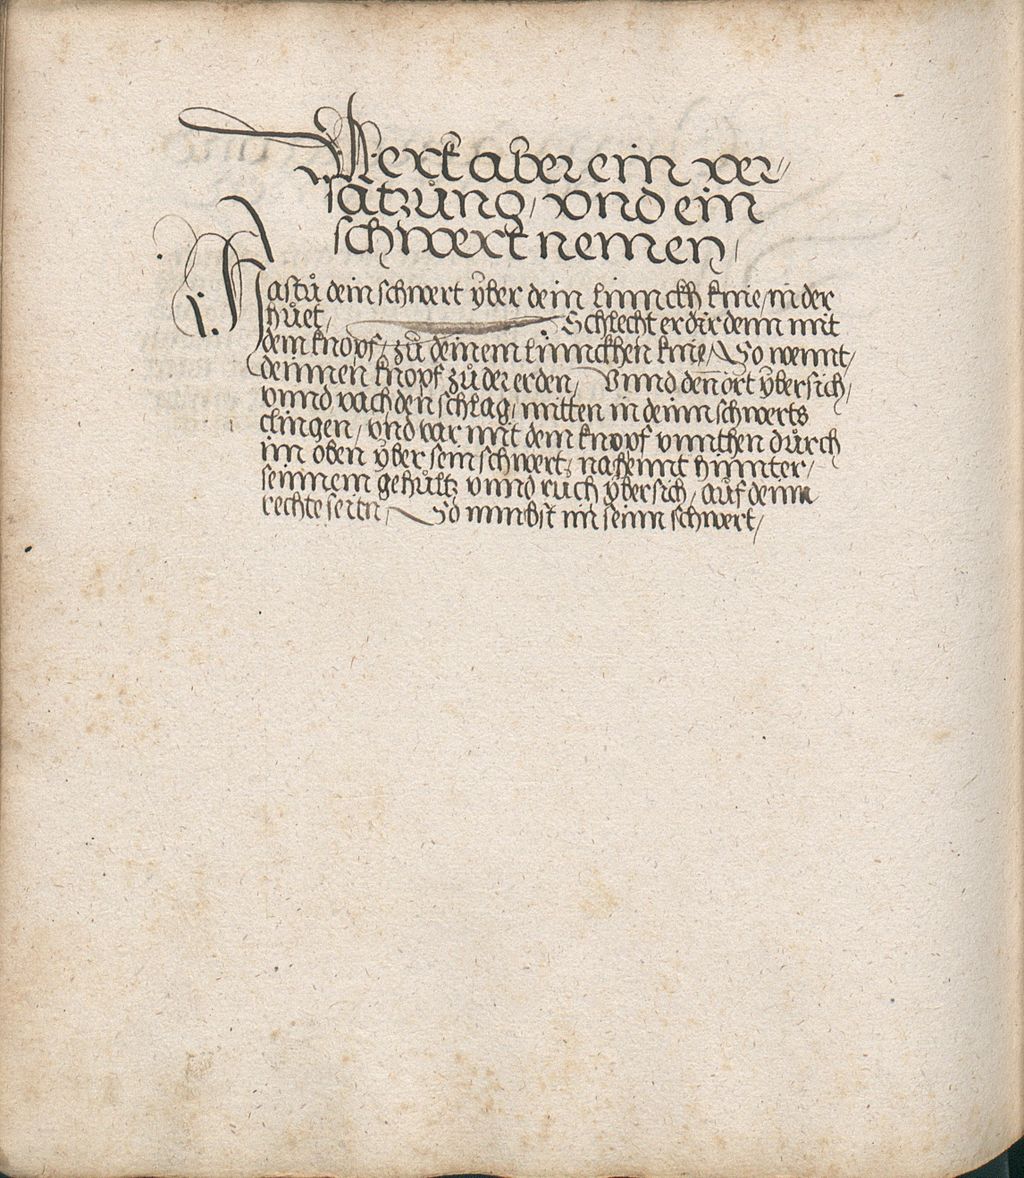 Merckt aber ein ver-
satzůng, vnd ein
schwert nemen,
Hastů dein schwert yber dein linnckh knie, in der
hůet, Schlecht er dir denn mit
dem knopf, zů deinem linnckhen knie, So wennt,
deinnen knopf zů der erden, Vnnd den ort ybersich,
vnnd vach den schlag, mitten in deinn schwerts
clingen, vnd var mit dem knopf vnnthen důrch
im oben yber sein schwert, nahennt hinnter,
seinnem gehůltz vnnd ruch ybersich, auf deinn
rechte seitn, So nimbst im seinn schwert,